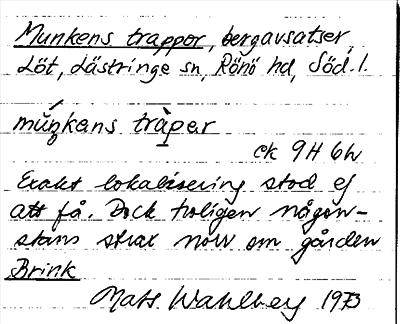 Munkens trappor, bergavsatser,
Löt, Lästringe sn, Rönö hd, Söd. l.
múŋkens tràper
ek 9H 6h
Exakt lokalisering stod ej
att få. Dock troligen någon-
stans strax norr om gården
Brink
Mats Wahlberg 1973